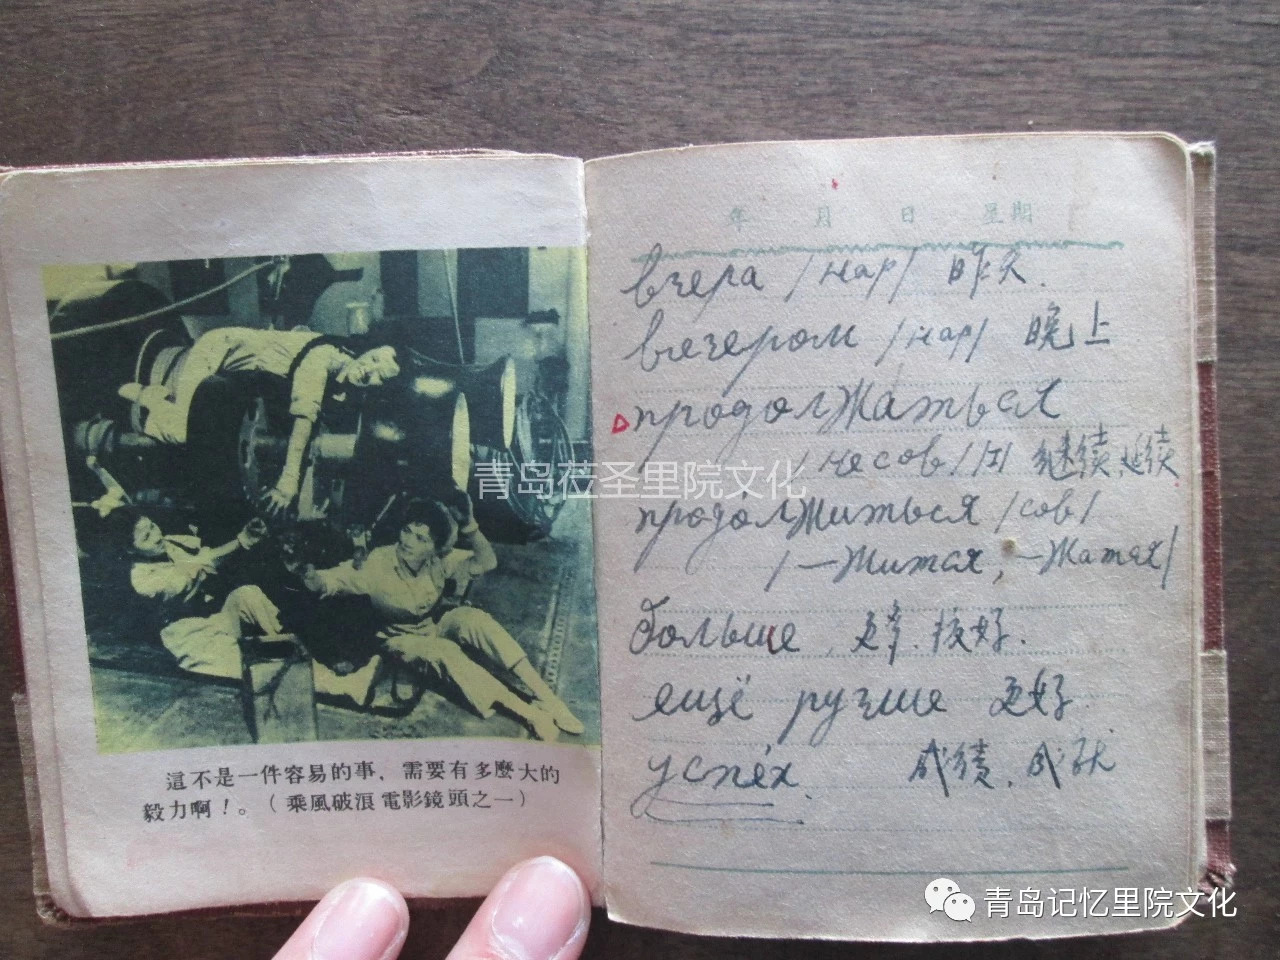 這不是一件容易的事，需要有多麼大的
毅力啊！。（乘風破浪電影鏡頭之一）
年 月 日 星期
вчера /нар/ 昨天.
вечером /нар/ 晚上
продолжаться
/несов/ /I/ 继续,延续
продолжиться /сов/
/—жится, —жатся/
больше, 更多, 较好.
ещё лучше 更好.
успех. 成绩, 成就
青岛莅圣里院文化
青岛记忆里院文化